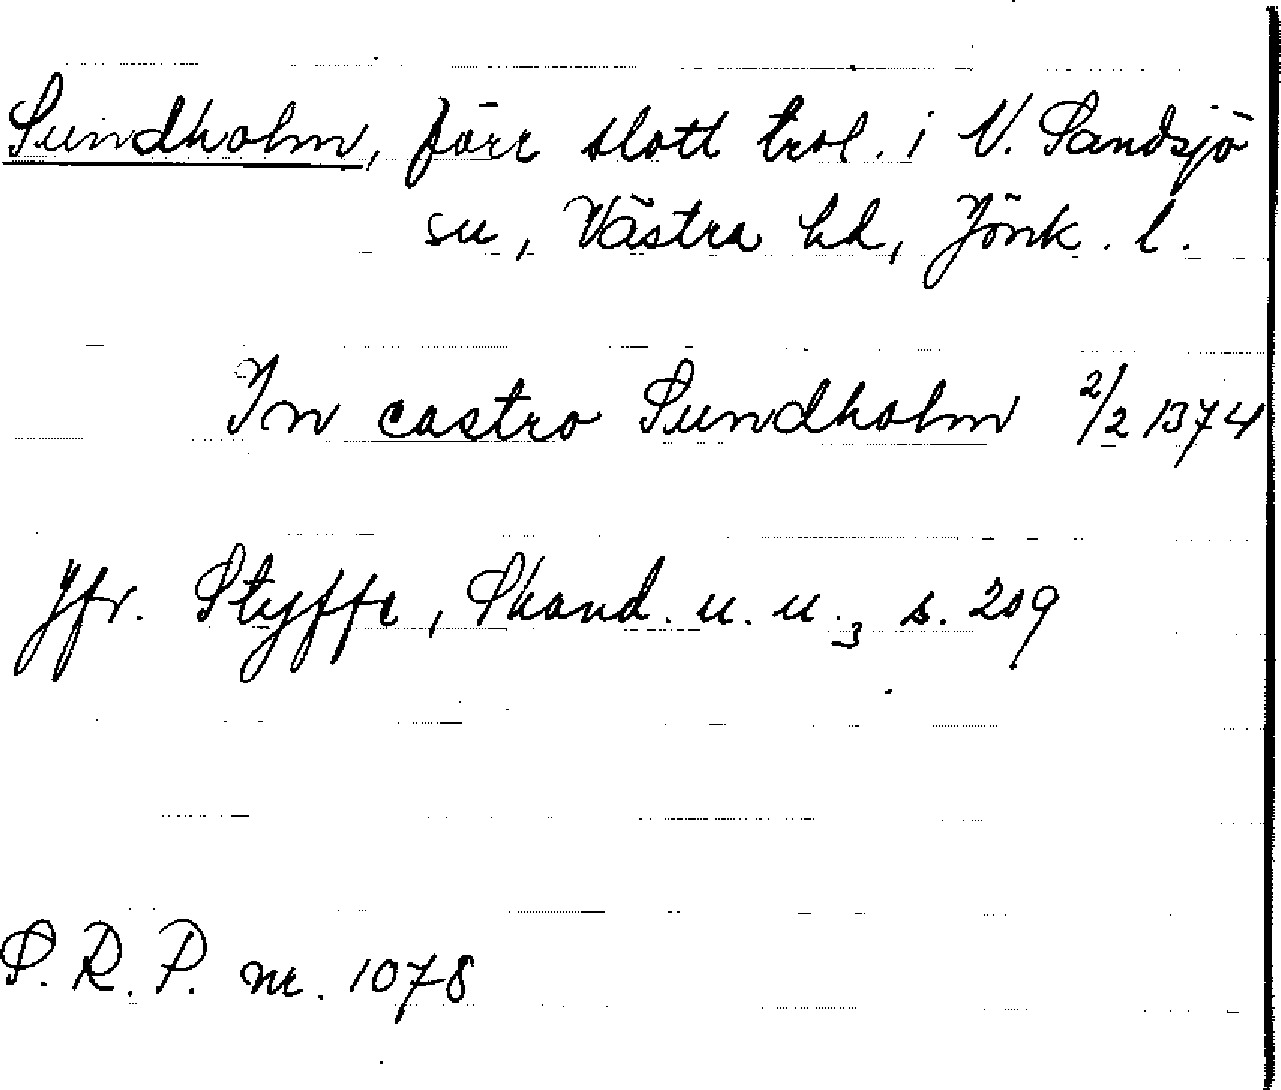 Sundholm, förr slott trol. i V. Sandsjö
sn, Västra hd, Jönk. l.
In castro Sundholm 2/2 1374
Jfr. Styffe, Skand. u. u.3 s. 209
S. R. P. nr. 1078